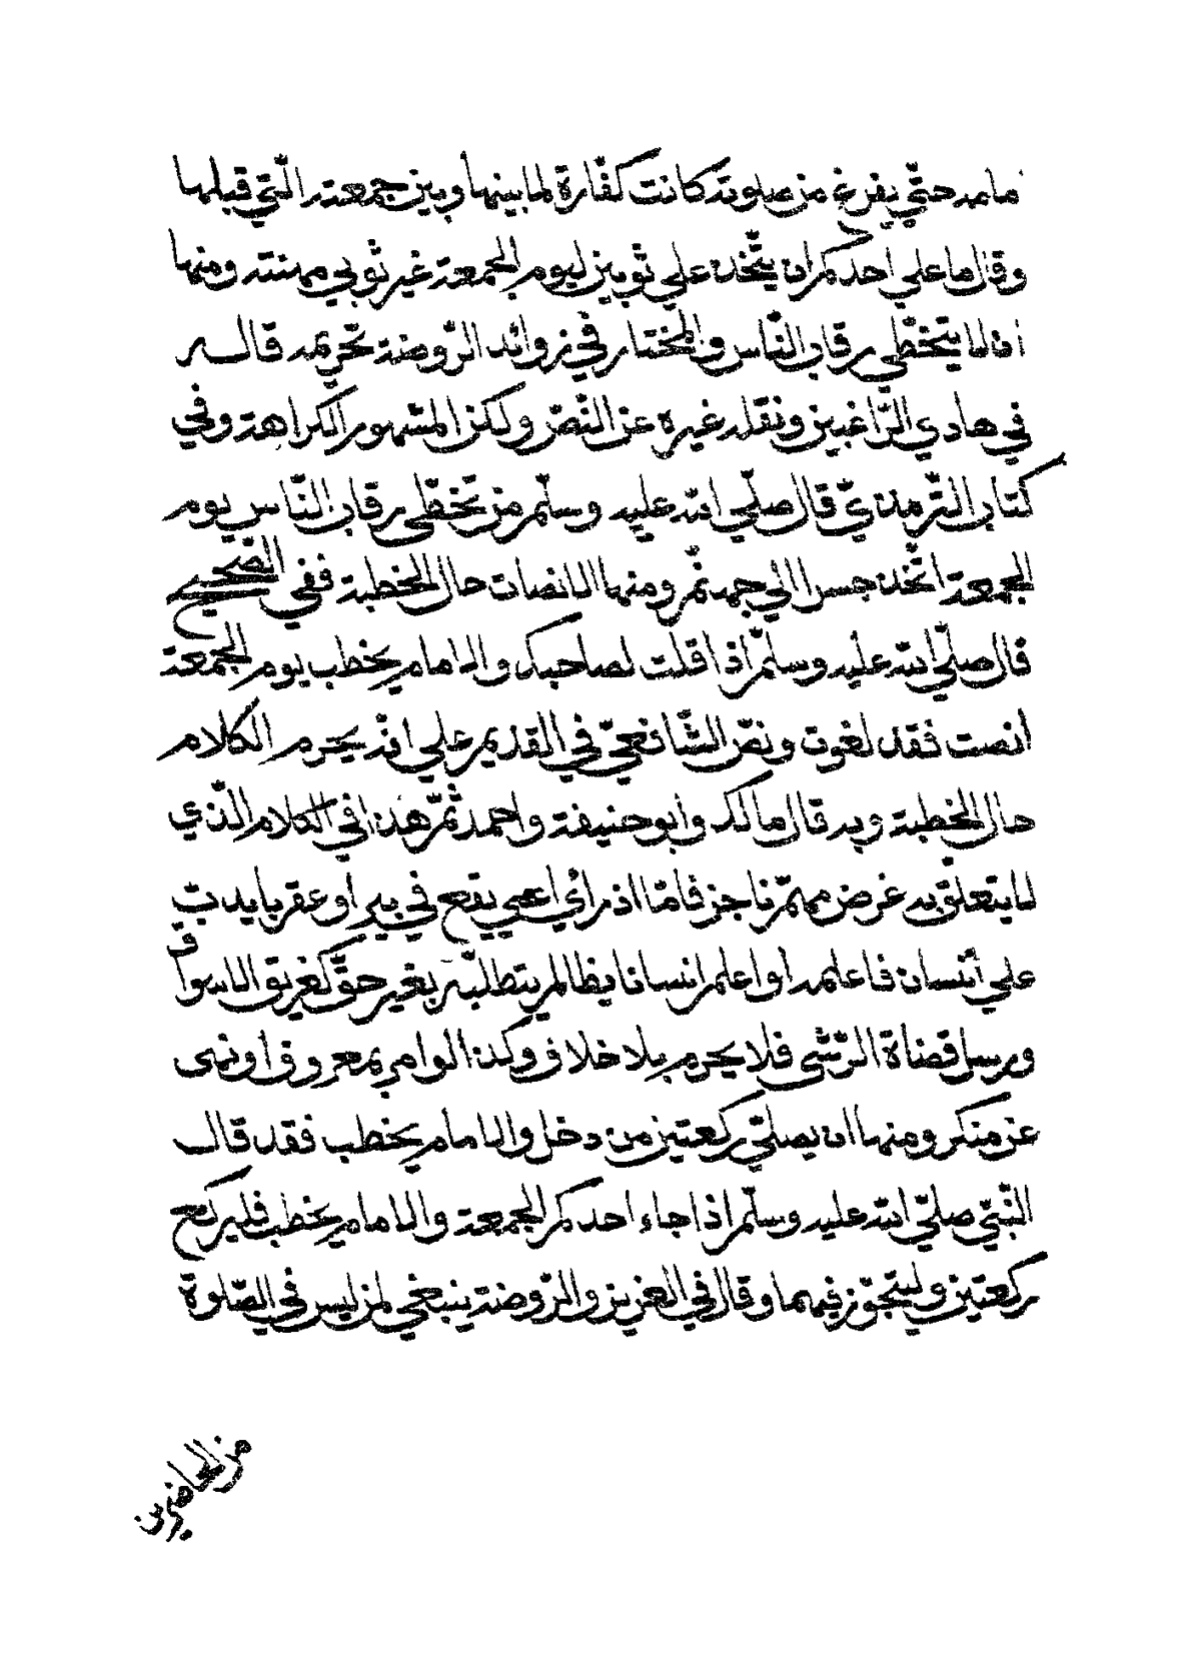 مامه حتّي يفرغ من صلوته كانت كفّارة لما بينها وبين جمعته الّتي قبلها
وقال ما علي احدكم ان يتّخذ علي ثوبين ليوم الجمعة غير ثوبي مهنته ومنها
ان لا يتخطّي رقاب النّاس والمختار في زوائد الرّوضة تحريمه قاله
في هادي الرّاغبين ونقله غيره عن النّصّ ولكن المشهور الكراهة وفي
كتاب التّرمذيّ قال صلّي الله عليه وسلّم من تخطّي رقاب النّاس يوم
الجمعة اتّخذ جسرا الي جهنّم ومنها الانصات حال الخطبة ففي الصّحيح
قال صلّي الله عليه وسلّم اذا قلت لصاحبك والامام يخطب يوم الجمعة
انصت فقد لغوت ونصّ الشّافعيّ في القديم علي انّه يحرم الكلام
حال الخطبة وبه قال مالك وأبو حنيفة واحمد ثمّ هذا في الكلام الّذي
لا يتعلّق به غرض مهمّ ناجز فامّا اذا رأي اعمي يقع في بير او عقربا يدبّ
علي أنسان فاعلمه أو اعلم انسانا ظالم يتطلّبه بغير حقّ كغريق الاسواق
ورسل قضاة الرّشي فلا يحرم بلا خلاف وكذا لو امر بمعروف او نهى
عن منكر ومنها ان يصلّي ركعتين من دخل والامام يخطب فقد قال
النّبيّ صلّي الله عليه وسلّم اذا جاء احدكم الجمعة والامام يخطب فليركع
ركعتين وليتجوّز فيهما وقال في العزيز والرّوضة ينبغي لمن ليس في الصّلوة
من الحاضرين